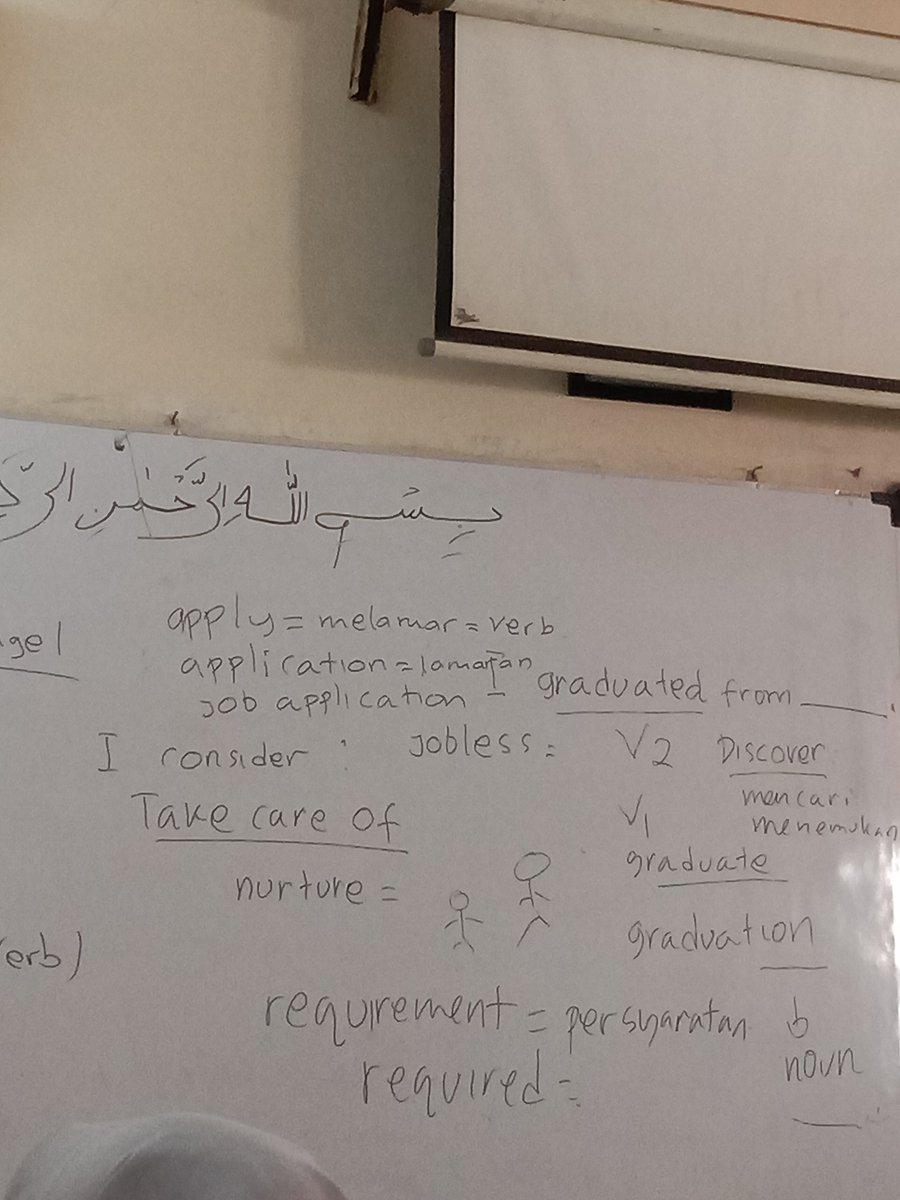 بِسْمِ اللّٰهِ الرَّحْمٰنِ الرَّحِ
gel
apply = melamar = verb
application = lamaran
job application = graduated from ______.
I consider : jobless = V2 Discover
mencari
menemukan
Take care of V1
graduate
nurture =
graduation
erb)
requirement = persyaratan b
noun
required =